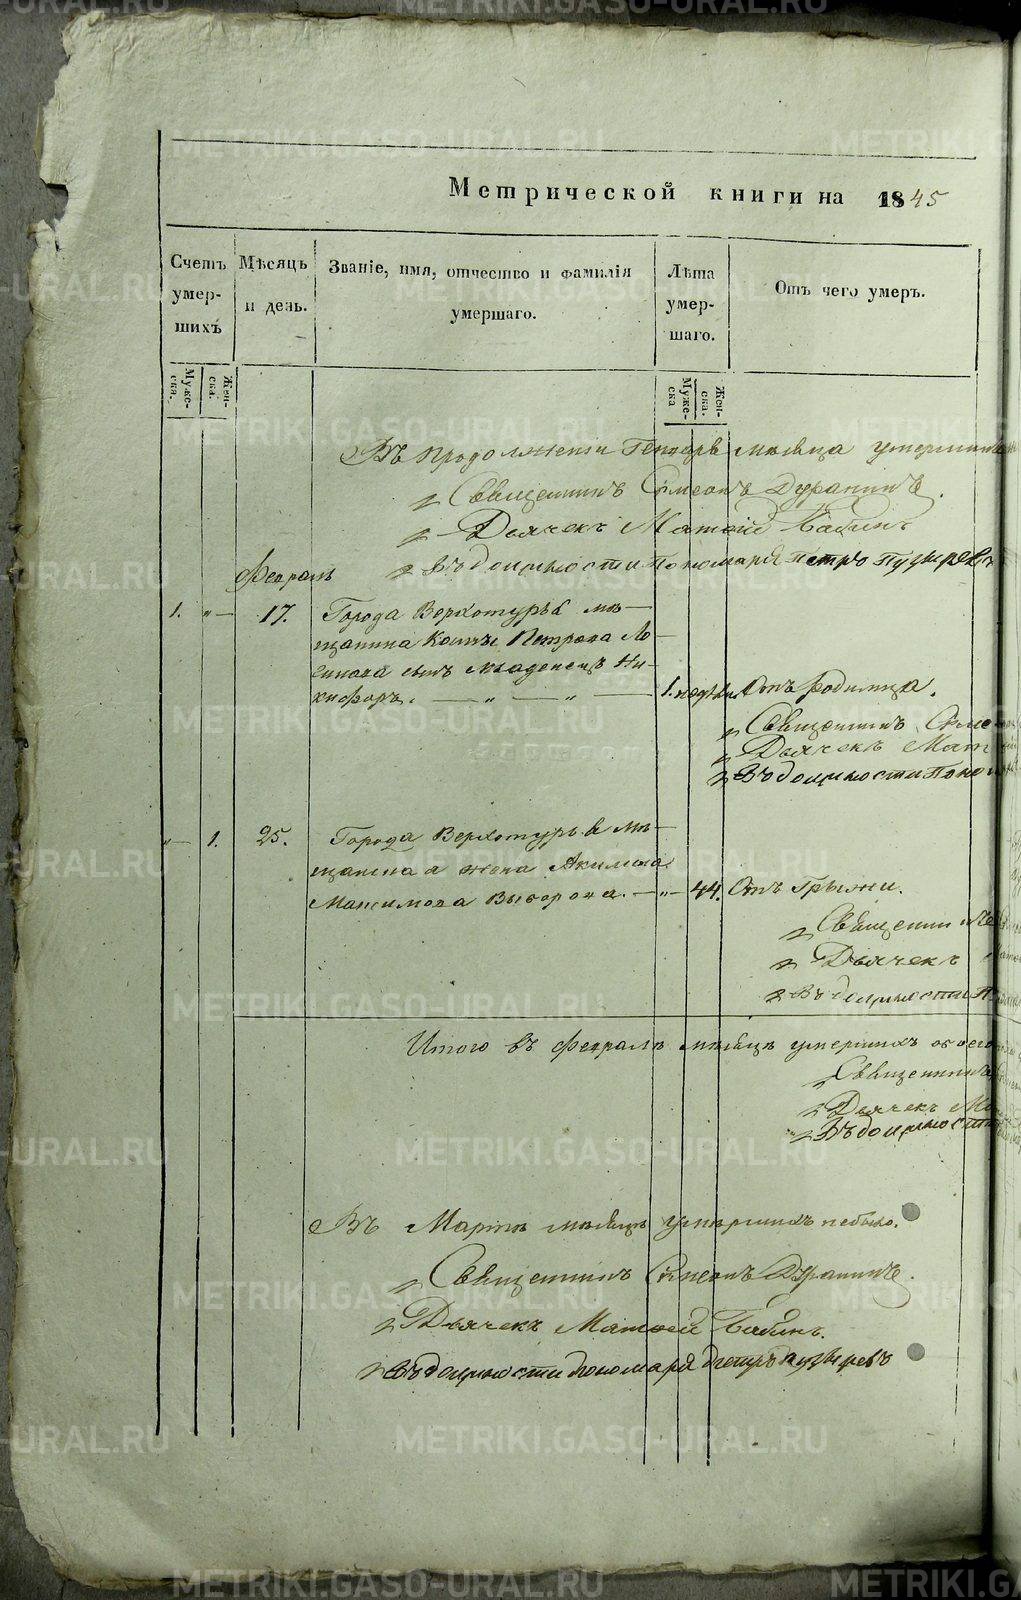 Метрической книги на 1845
Счетъ умер-шихъ
Мѣсяцъ и день.
Званіе, имя, отчество и фамилія умершаго.
Лѣта умер-шаго.
Отъ чего умеръ.
Муже-ска.
Жен-ска.
Муже-ска
Жен-ска.
Въ продолженіи Генваре мѣсяца умершихъ
Священникъ Симеонъ Дурапинъ.
Дьячекъ Матѳей Бабинъ
Въ должности Пономаря Петръ Пузыревъ
Февраль
1. " — 17. Города Верхотурья мѣ—
щанина Козмы Петрова Ло—
гинова сынъ младенецъ Ни-
кифоръ. — " — " — 1. недѣли Отъ родимца.
Священникъ Симе
Дьячекъ Мат
Въ должности Поно
" — 1. 25. Города Верхотурья мѣ—
щанина жена Акилина
Максимова Выборова. — " — 44. Отъ Грыжи.
Священникъ
Дьячекъ
Въ должности П
Итого въ Февралѣ мѣсяцѣ умершихъ обоего
Священникъ
Дьячекъ Ма
Въ должности
Въ Мартѣ мѣсяцѣ умершихъ небыло.
Священникъ Симеонъ Дурапинъ.
Дьячекъ Матѳей Бабинъ.
Въ должности пономаря Петръ Пузыревъ
METRIKI.GASO-URAL.RU